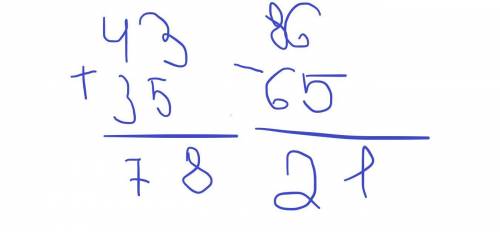 43 86
+ 35 - 65
78 21